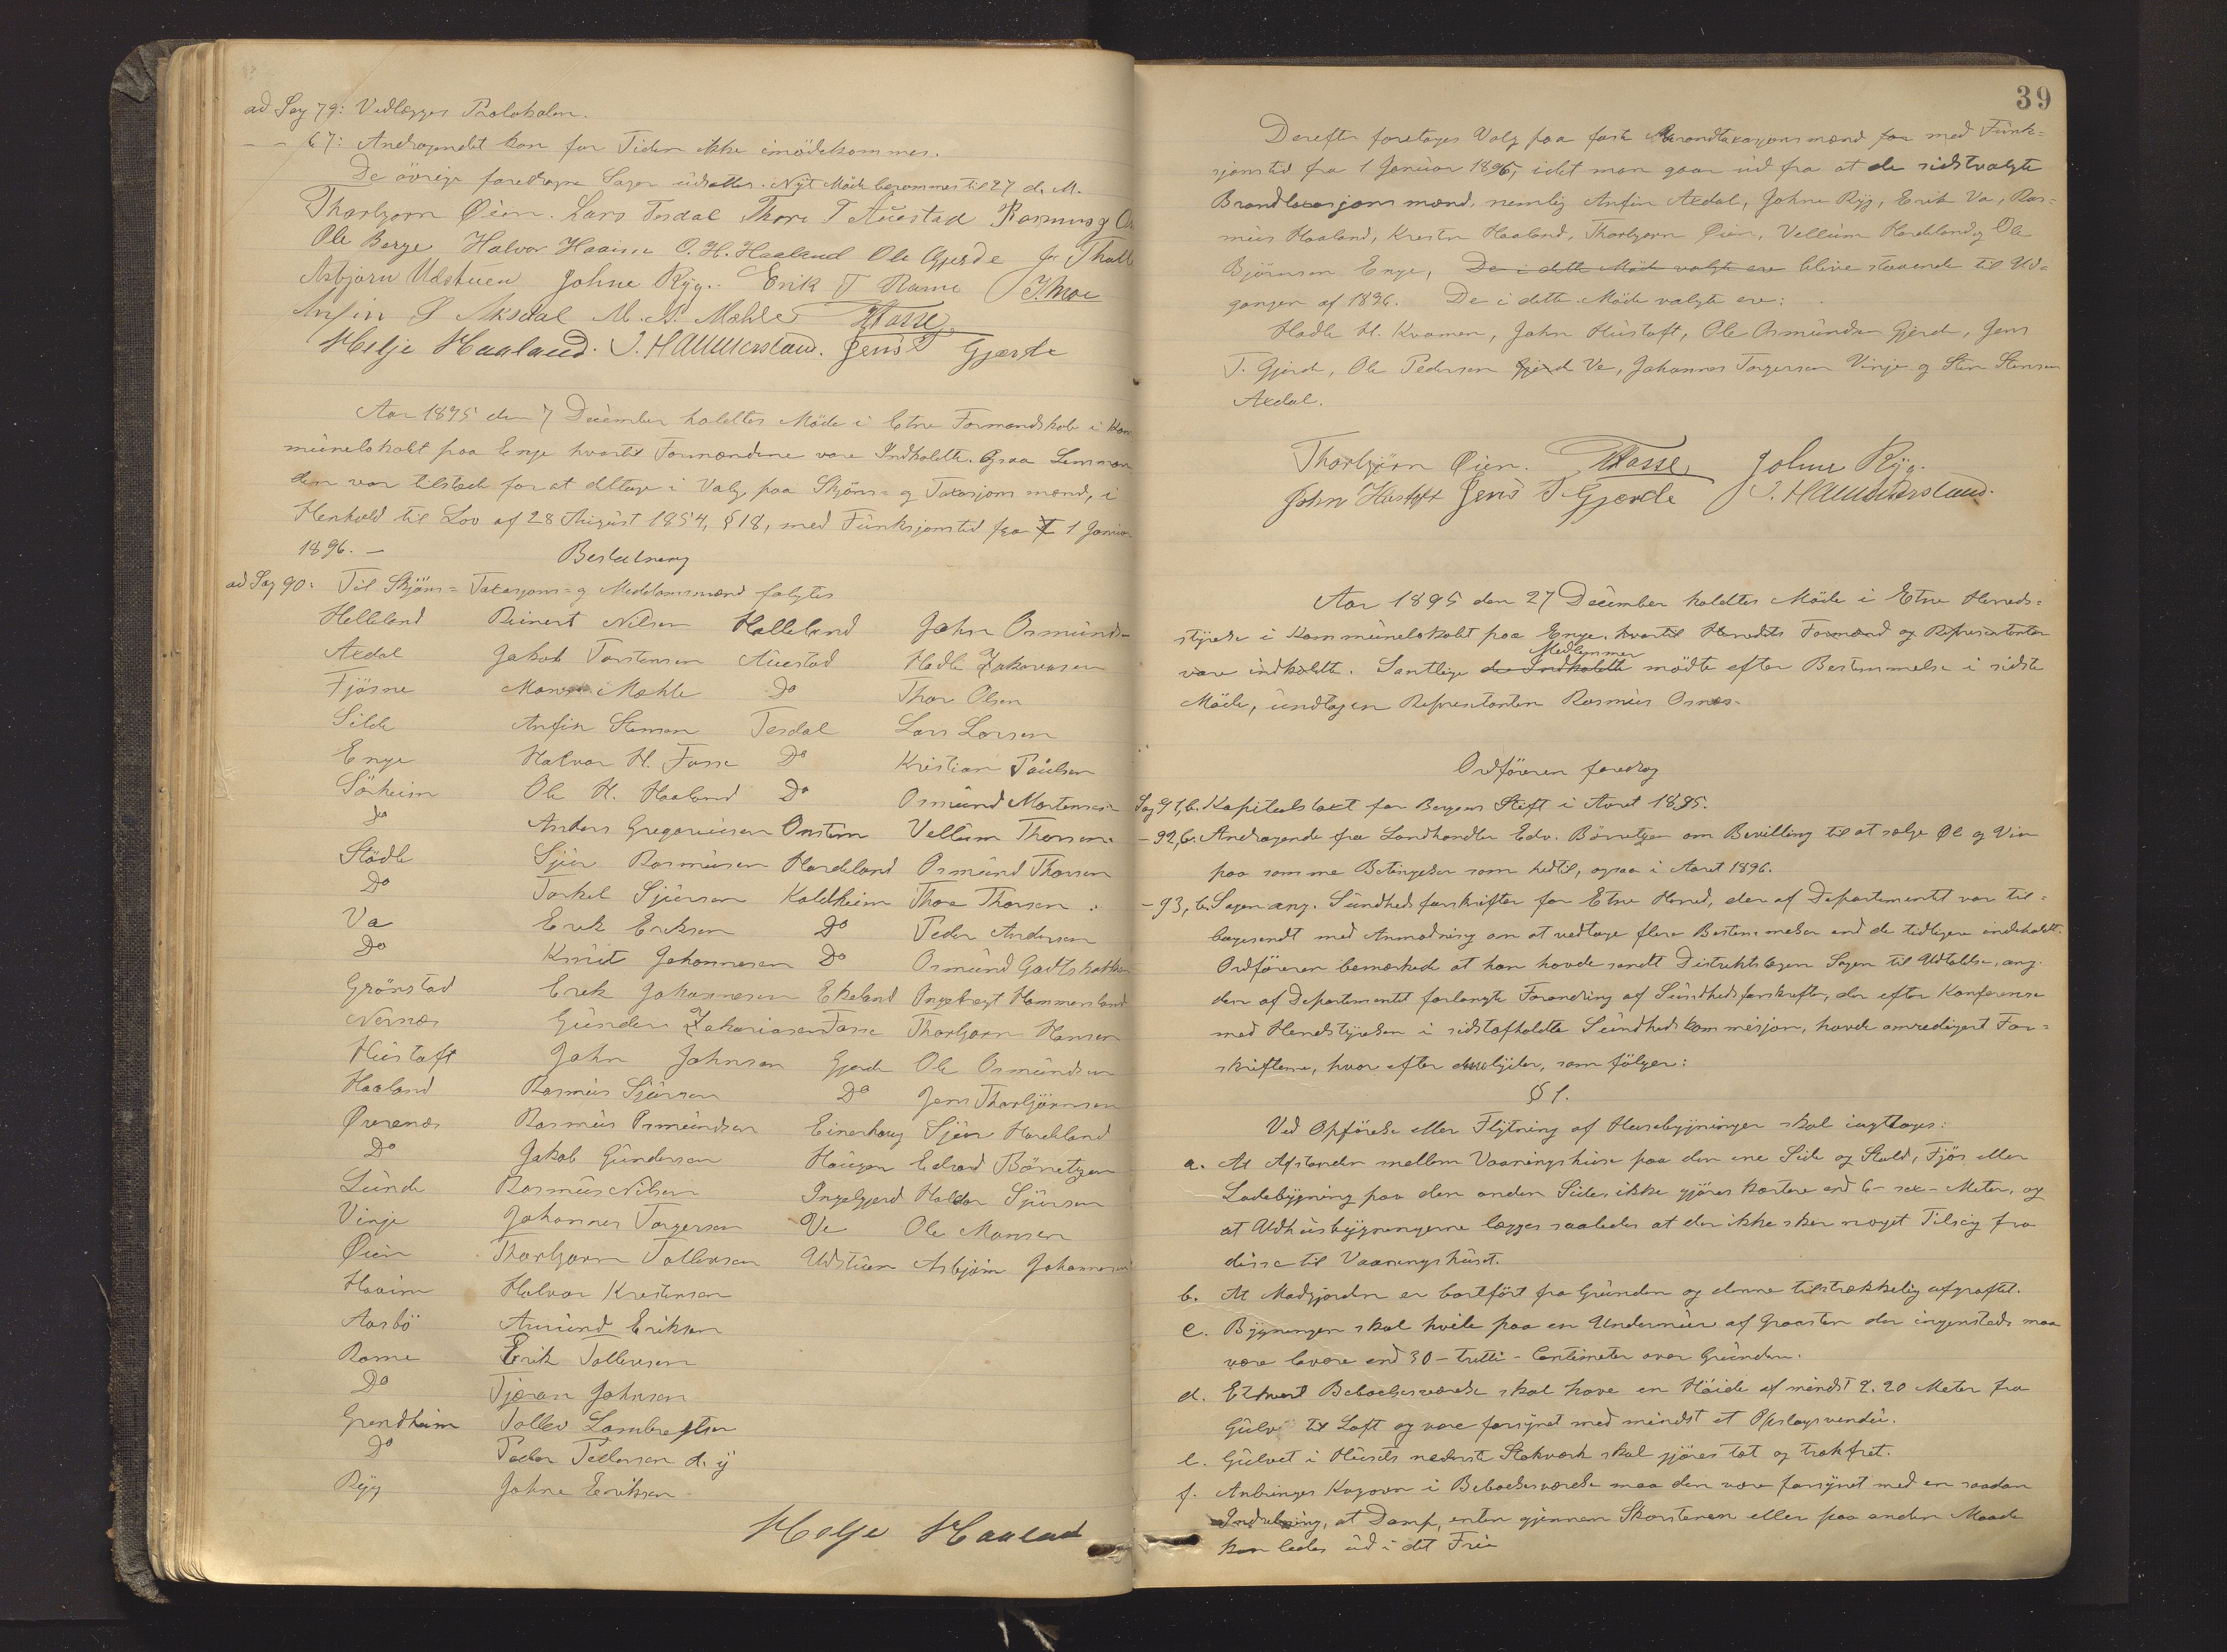 ad Sag 79: Vedlægges Protokolen.
- - 67: Andragendet kan for Tiden ikke imödekommes.
De övrige foredragne Sager udsattes. Nyt Möde berammes til 27 d. M.
Thorbjorn Øien. Lars Tesdal Thore T Auestad Rasmus
Ole Berge Halvor Haaim O. H. Haaland Ole Gjerde
Asbjørn Udstuen Johne Ryg. Erik T Rame
Anfin Aksdal M. A. Mæhle HFosse
Helje Haaland. I. Hammersland. Jens T Gjærde
Aar 1895 den 7 December holdtes Möde i Etne Formandskab i Kom
munelokalet paa Enge hvortil Formændene vare Indkaldte. Ogsaa Lensman
den var tilstede for at deltage i Valg paa Skjöns= og Taxasjons mænd, i
Henhold til Lov af 28 August 1854, § 18, med Funksjonstid fra 1 Januar
1896. —
Beslutning
ad Sag 90: Til Skjöns= Taxasjons= og Meddomsmænd falgtes
Helleland Reinert Nilsen Halleland John Osmunds
Axdal Jakob Torstensen Auestad Hadle Zakariasen
Fjösne Mons Mæhle Do Thor Olsen
Silde Anfin Stensen Tesdal Lars Larsen
Enge Halvor H. Fosse Do Kristian Paulsen
Sörheim Ole H. Haaland Do Osmund Mortensen
Do Anders Gregoriusen Onstein Vellum Thorsen
Stödle Sjur Rasmusen Hardeland Osmund Thorsen
Do Torkel Sjursen Kaldheim Thore Thorsen
Va Erik Eriksen Do Peder Andersen
Do Knut Johannesen Do Osmund Godtskalksen
Grönstad Erik Johannesen Ekeland Ingebregt Hammersland
Nernæs Gunder Zakariasen Fosse Thorbjorn Hansen
Hustoft John Johnsen Gjerde Ole Osmundsen
Haaland Rasmus Sjursen Do Jens Thorbjörnsen
Øvrenæs Rasmus Osmundsen Einerhaug Sjur Hardeland
Do Jakob Gundersen Haugen Edvard Börretzen
Lunde Rasmus Nilsen Ingebjerd Haldor Sjursen
Vinje Johannes Torgersen Ve Ole Monsen
Øien Thorbjorn Tollevsen Udstuen Asbjörn Johannesen
Haaim Halvor Kristensen
Aasbö Amund Eriksen
Rame Erik Tollevsen
Do Tjeran Johnsen
Grindheim Tollev Lambregtsen
Do Peder Pedersen d. y
Ryg Johne Eriksen
Helje Haaland
39
Derefter foretoges Valg paa faste Brandtaxasjonsmænd for med Funk=
sjonstid fra 1 Januar 1896, idet man gaar ud fra at de sidstvalgte
Brandtaxasjons mænd, nemlig Anfin Axdal, Johne Ryg, Erik Va, Ras=
mus Haaland, Kresten Haaland, Thorbjorn Øien, Vellum Hardeland og Ole
Björnsen Enge, De i dette Möde valgte ere blive staaende til Ud=
gangen af 1896. De i dette Möde valgte ere:
Hadle H. Kvamen, John Hustoft, Ole Osmundsen Gjerde, Jens
T. Gjerde, Ole Pedersen Gjerde Ve, Johannes Torgersen Vinje og Sten Stensen
Axdal.
Thorbjörn Øien. HFosse Johne Ryg.
John Hustoft Jens T Gjerde I. Hammersland.
Aar 1895 den 27 December holdtes Möde i Etne Herreds=
styrelse i Kommunelokalet paa Enge, hvortil Herredets Formænd og Repræsentanter
Medlemmer
vare indkaldte. Samtlige de Indkaldte mödte efter Bestemmelse i sidste
Möde, undtagen Repræsentanten Rasmus Osnes.
Ordföreren foredrog
Sag 91, b. Kapitelstaxt for Bergens Stift i Aaret 1895.
- 92, b. Andragende fra Landhandler Edv. Börretzen om Bevilling til at sælge Øl og Vin
paa samme Betingelser som hidtil, ogsaa i Aaret 1896.
- 93, b. Sagen ang. Sundhedsforskrifter for Etne Herred, der af Departementet var til=
bagesendt med Anmodning om at vedtage flere Bestemmelser end de tidligere indeholdt.
Ordföreren bemærkede at han havde sendt Distriktslægen Sagen til Udtalelse, ang.
den af Departementet forlangte Forandring af Sundhedsforskrifter, der efter Konferense
med Herredstyrelsen i sidstafholdte Sundhedskommisjon, havde omredigert For=
skrifterne, hvor efter de lyder, som fölger:
§ 1.
Ved Opförelse eller Flytning af Husebygninger skal iagttages:
a. At Afstanden mellem Vaaningshuse paa den ene Side og Stald, Fjös eller
Ladebygning paa den anden Side, ikke gjöres kortere end 6 - sex - Meter, og
at Udhusbygningerne lægges saaledes at der ikke sker noget Tilsig fra
disse til Vaaningshuset.
b. At Madjorden er bortfört fra Grunden og denne tilstrækkelig afgröftet.
c. Bygningen skal hvile paa en Undermur af Graasten der ingensteds maa
være lavere end 30 - tretti - Centimeter over Grunden.
d. Ethvert Beboelsesværelse skal have en Höide af mindst 2.20 Meter fra
Gulv til Loft og være forsynet med mindst et Opslagsvendu.
e. Gulvet i Husets nederste Stokværk skal gjöres tæt og trækfrit.
f. Anbringes Kogeovn i Beboelsesværelse maa den være forsynet med en saadan
Indretning, at Damp, enten gjennem Skorstenen eller paa anden Maade
kan ledes ud i det Frie